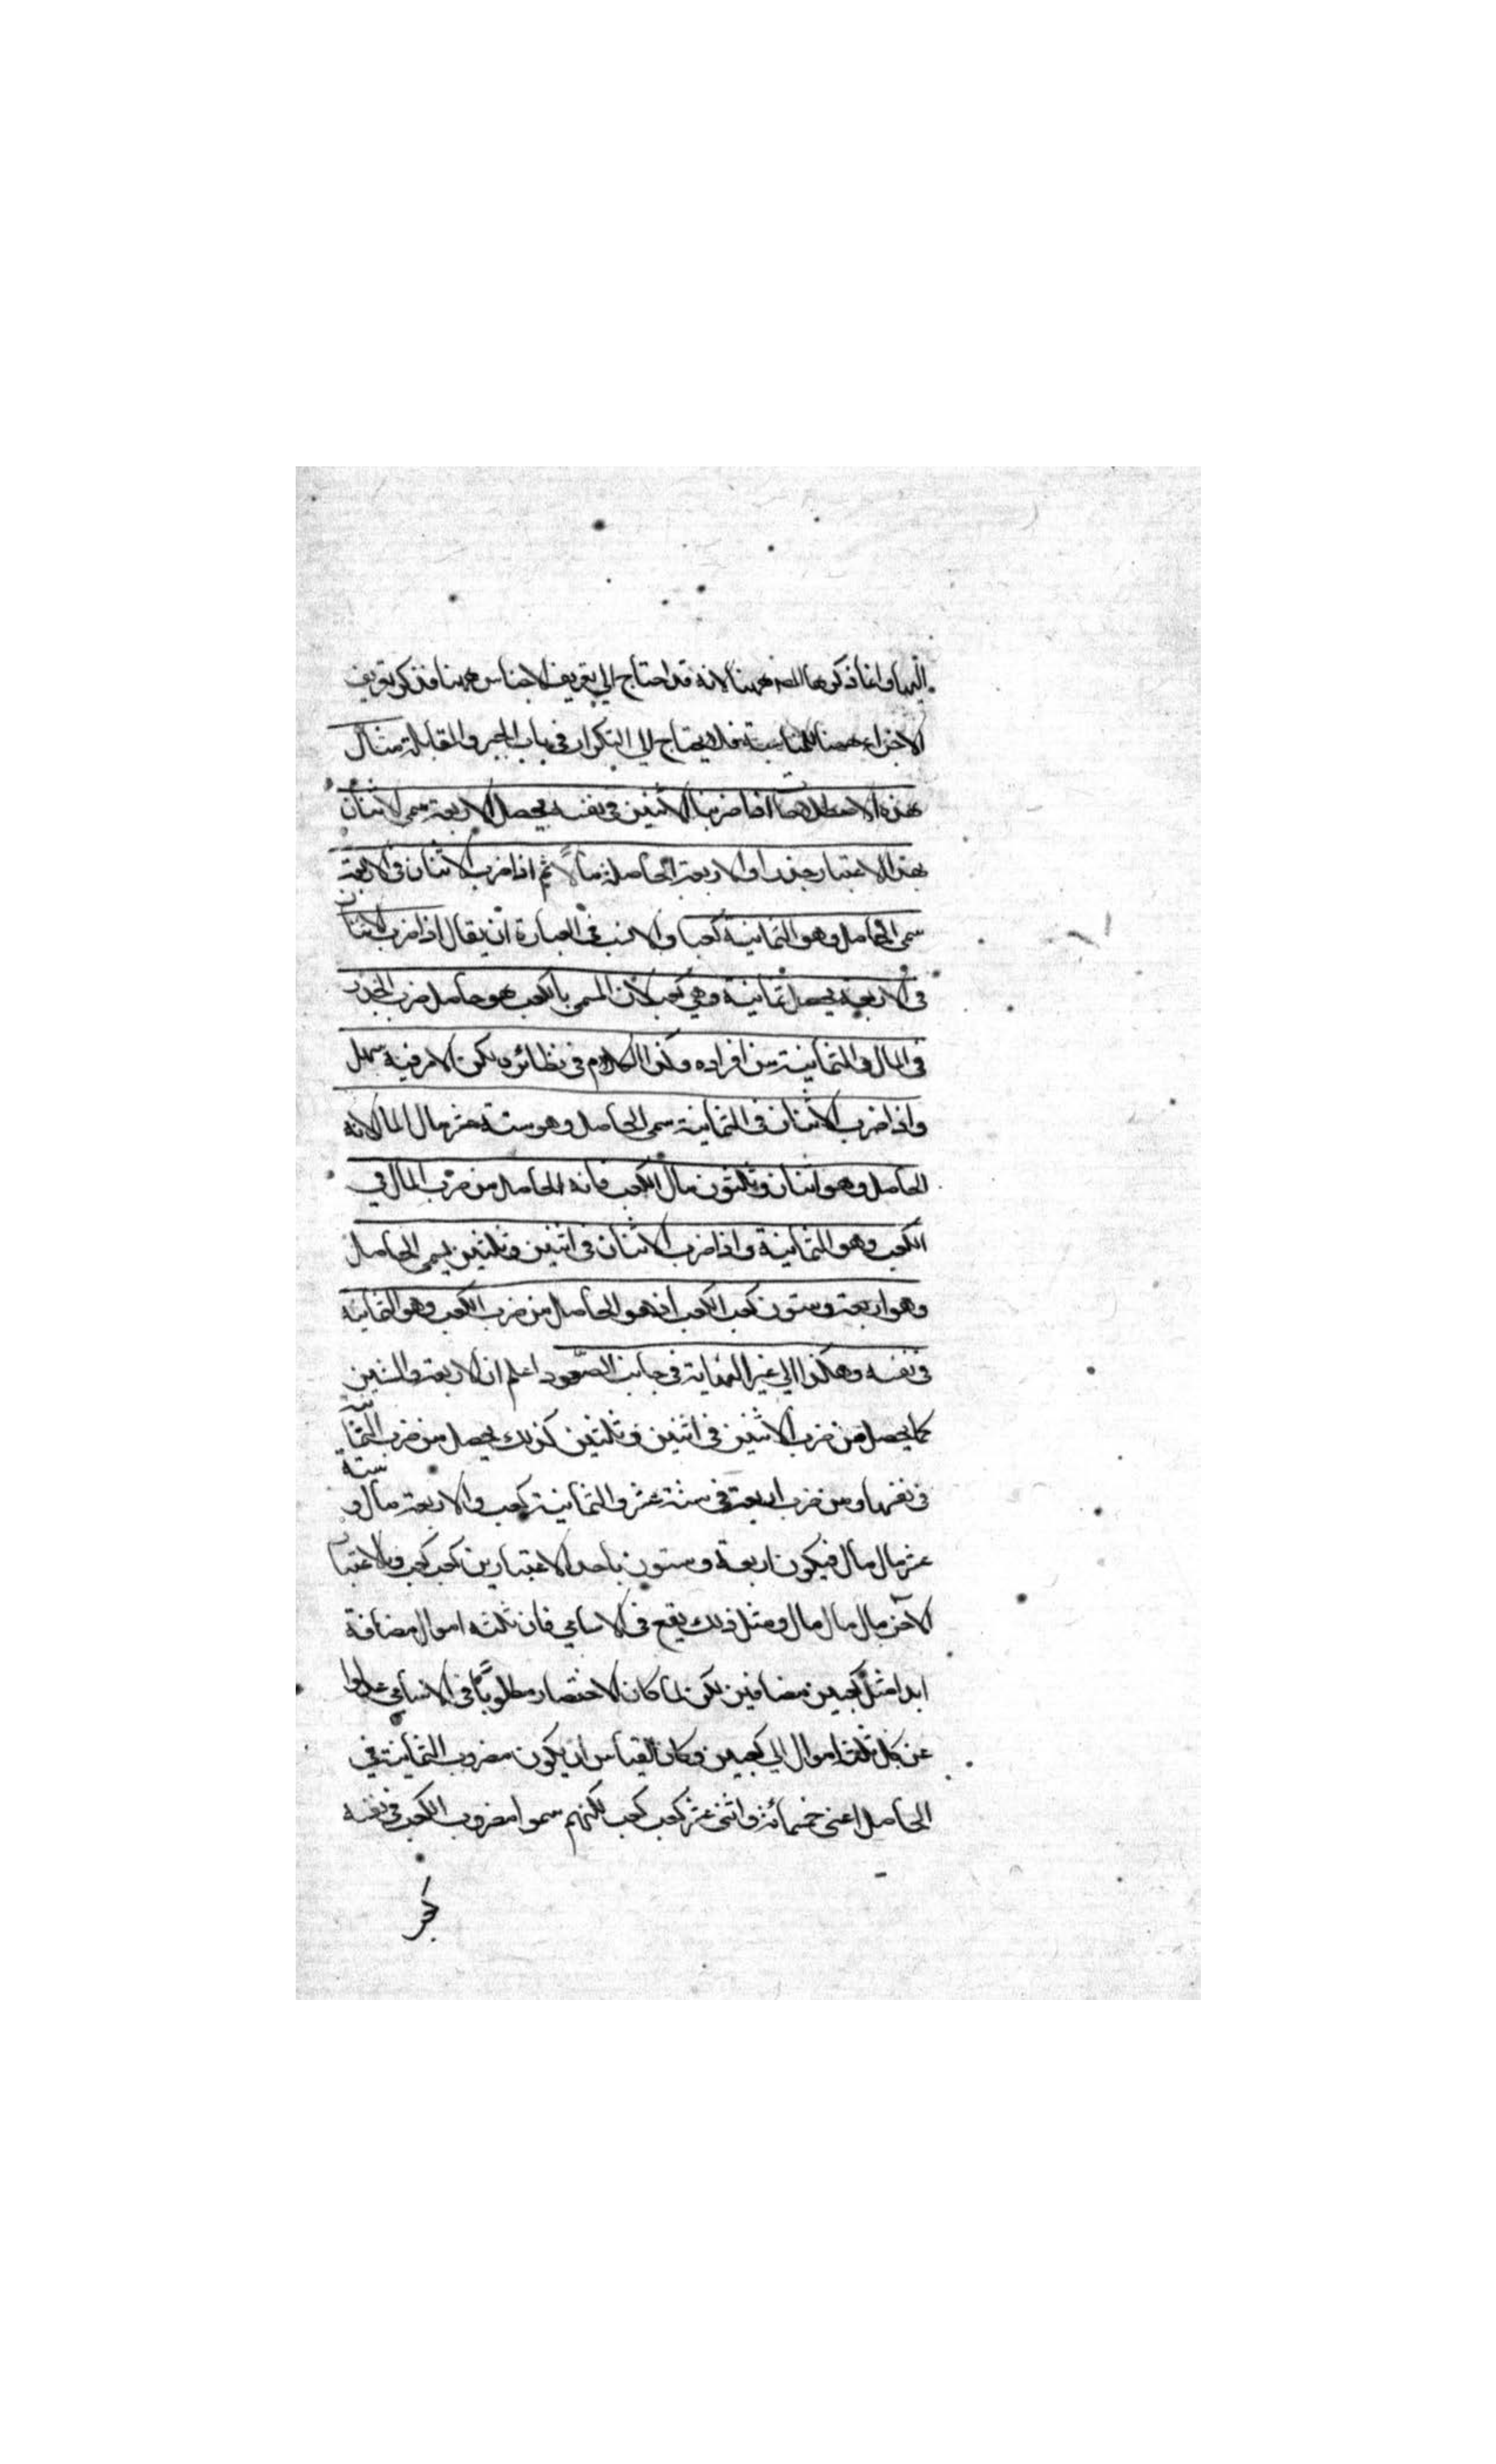 اليها وانما ذكرها المصـ ههنا لانه قد احتاج الي تعريف الاجناس ههنا فذكر تعريف
الاجزاء ههنا للمناسبة فلا يحتاج الي التكرار في باب الجبر والمقابلة مثال
هذه الاصطلاحات اذا ضربنا الاثنين في نفسه يحصل الاربعة سمي الاثنان
بهذا الاعتبار جذرا والاربعة الحاصلة مالاً ثم اذا ضرب الاثنان في الاربعة
سمي الحاصل وهو الثمانية كعبا والانسب في العبارة ان يقال اذا ضرب الاثنان
في الاربعة يحصل ثمانية وهي كعب لان المسمي بالكعب هو حاصل ضرب الجذر
في المال والثمانية من افراده وكذا الكلام في نظائره لكن الامر فيه سهل
واذا ضرب الاثنان في الثمانية سمي الحاصل وهو ستة عشر مال المال لانه
الحاصل وهو اثنان وثلثون مال الكعب فانه الحاصل من ضرب المال في
الكعب وهو الثمانية واذا ضرب الاثنان في اثنين وثلثين يسمي الحاصل
وهو اربعة وستون كعب الكعب اذ هو الحاصل من ضرب الكعب وهو الثمانية
في نفسه وهكذا الي غير النهاية في جانب الصّعود اعلم ان الاربعة والستين
كما يحصل من ضرب الاثنين في اثنين وثلثين كذلك يحصل من ضرب الثمانية
في نفسها ومن ضرب اربعة في ستة عشر والثمانية كعب والاربعة مال و ستة
عشر مال مال فيكون اربعة وستون باحد الاعتبارين كعب كعب وبالاعتبار
الآخر مال مال مال ومثل ذلك يقع في الاسامي فان ثلثة اموال مضافة
ابدا مثل كعبين مضافين لكن لما كان الاختصار مطلوباً في الاسامي عدلوا
عن كل ثلثة اموال الي كعبين وكان القياس ان يكون مضروب الثمانية في
الحاصل اعني خمسمائة واثني عشر كعب كعب لكنهم سموا مضروب الكعب في نفسه